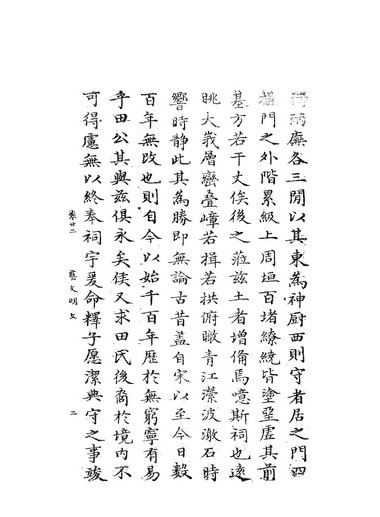 兩廡各三間以其東為神厨西則守者居之門四
楹門之外階累級上周垣百堵繚繞皆塗堊虛其前
基方若干丈俟後之蒞茲土者增備焉噫斯祠也遠
眺大峩層巒疊嶂若揖若拱俯瞰青江瀠波激石時
響時靜此其為勝即無論古昔蓋自宋以至今日數
百年無改也則自今以始千百年歷於無窮寧有易
乎田公其與茲俱永矣俟又求田氏後裔於境内不
可得慮無以終奉祠宇爰命釋子愿潔典守之事竣
卷廿二 藝文明文 二